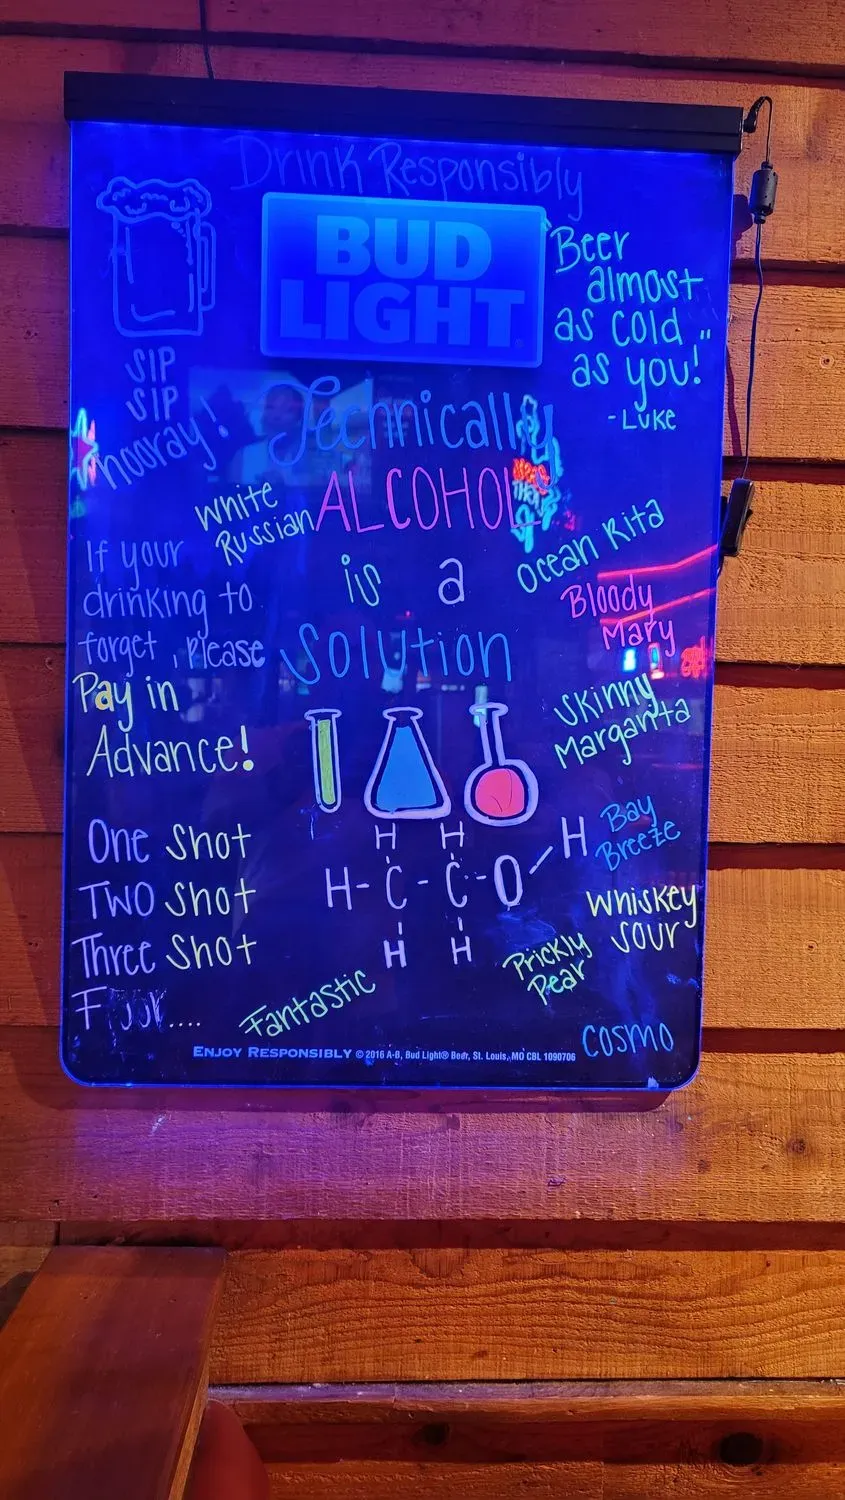 Drink Responsibly
BUD
LIGHT
Beer
almost
as cold
as you!"
-Luke
SIP
SIP
hooray!
Technically
ALCOHOL
is a
Solution
White
Russian
If your
drinking to
forget, please
Pay in
Advance!
Ocean Rita
Bloody
Mary
Skinny
Margarita
Bay
Breeze
Whiskey
Sour
Prickly
Pear
Cosmo
One Shot
Two Shot
Three Shot
Four....
H H H
H-C-C-O
H H
Fantastic
ENJOY RESPONSIBLY © 2016 A-B, Bud Light® Beer, St. Louis, MO CBL 1090706